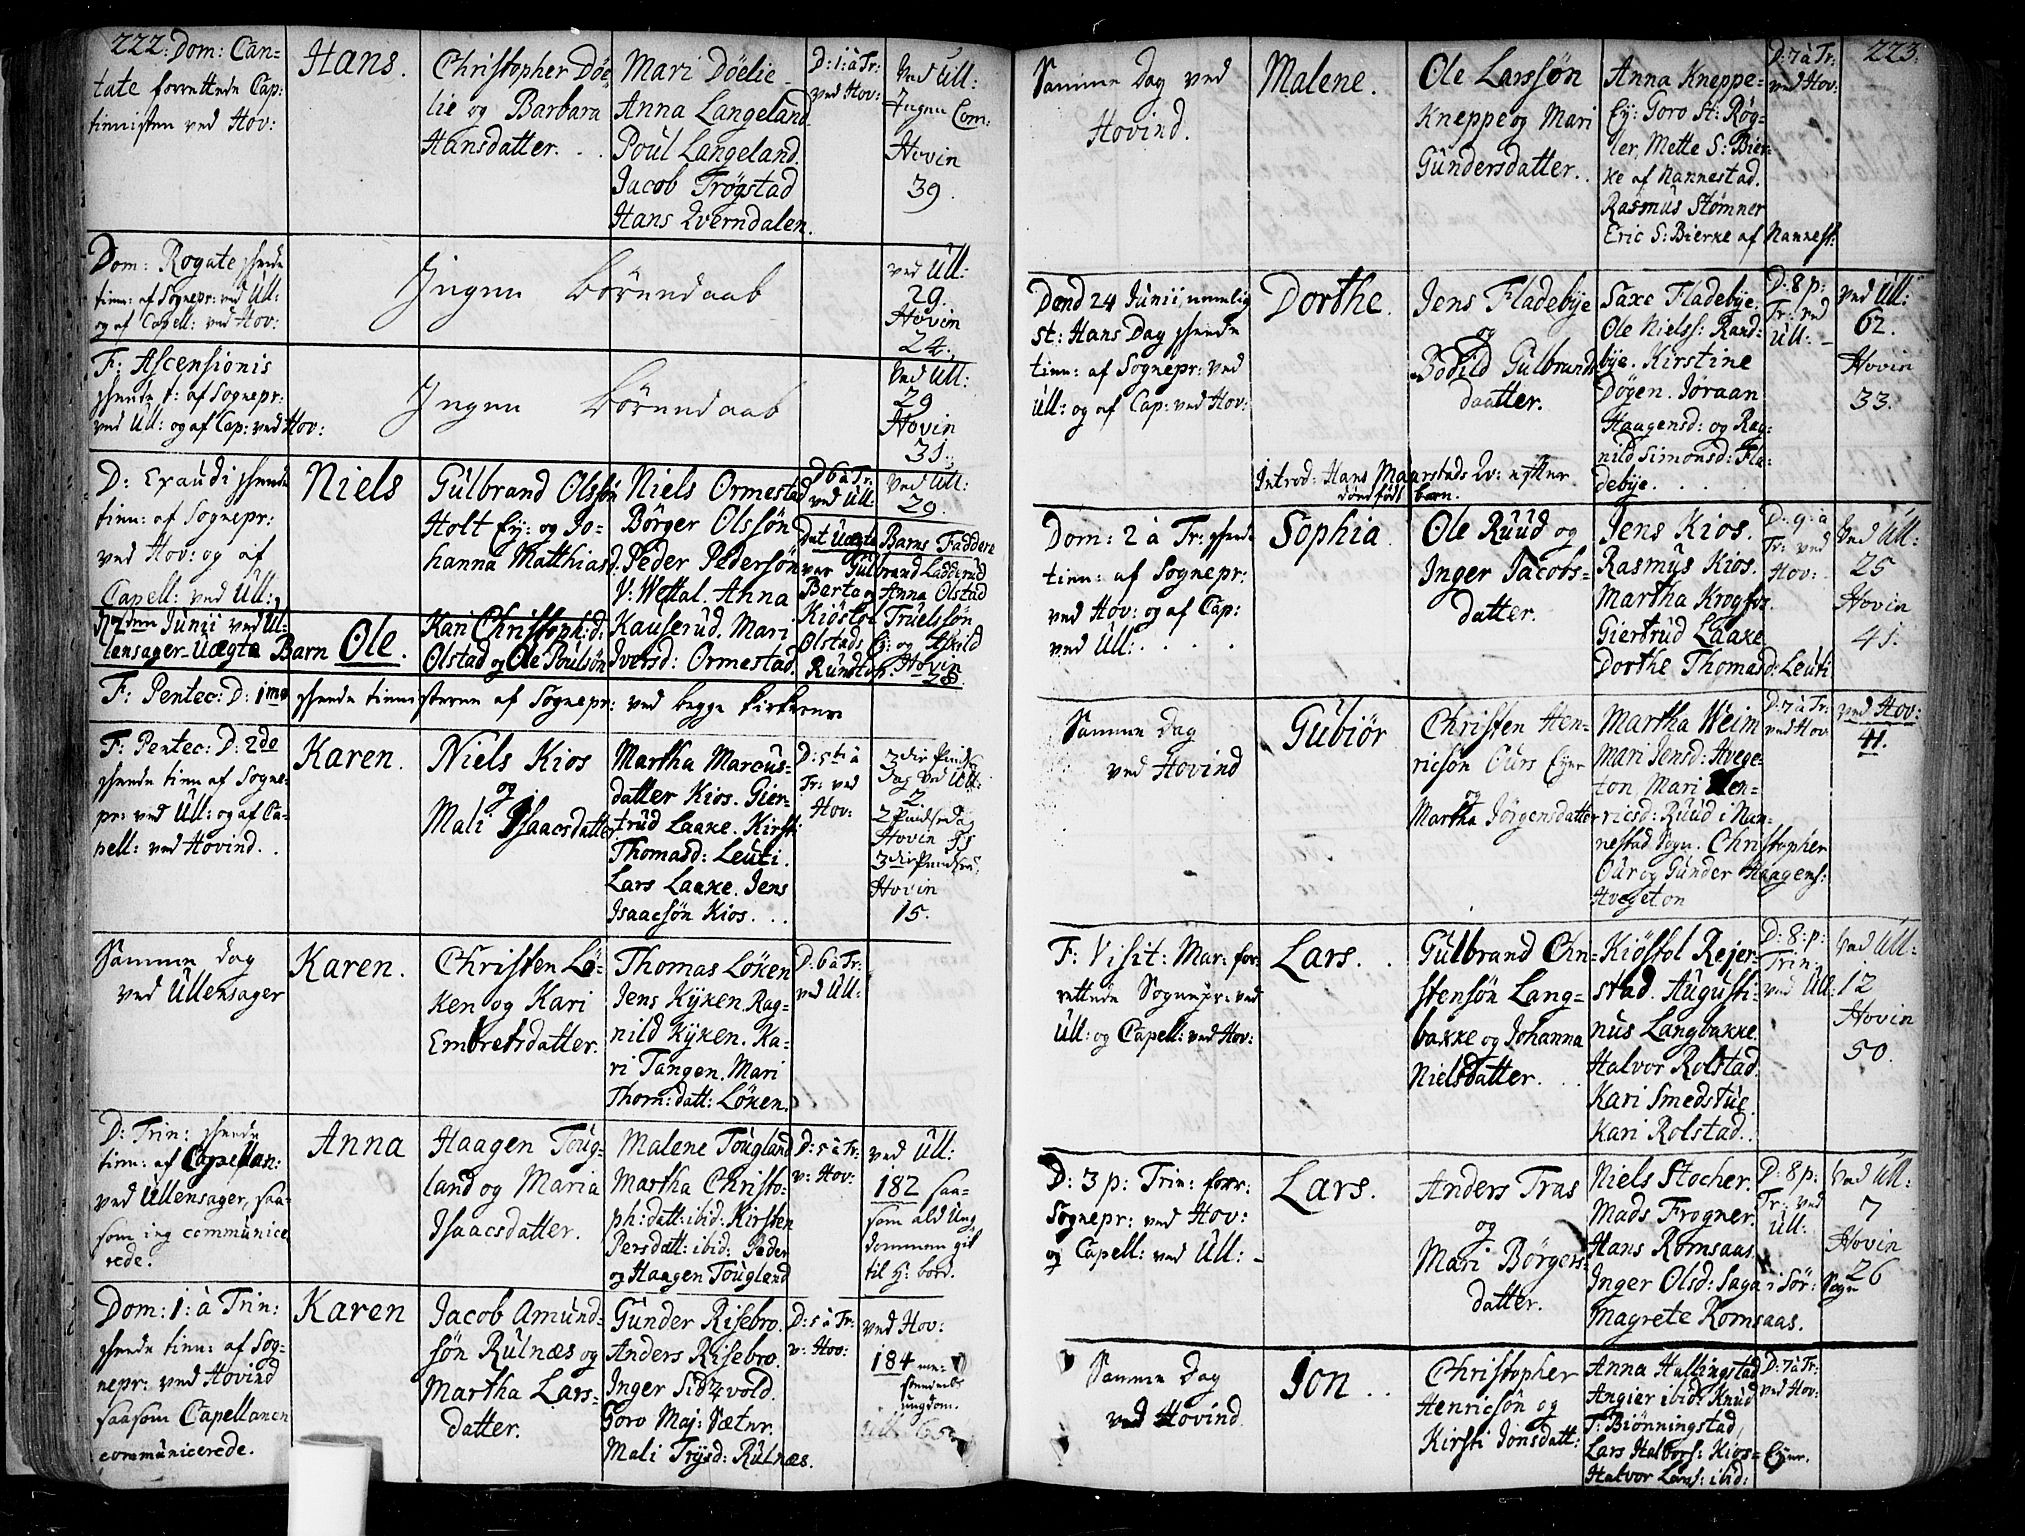 222. Dom: Can-
tate forrettede Cap:
tienisten ved Hov:
Hans.
Christopher Döe-
lie og Barbara
Hansdatter. . .
Mari Döelie
Anna Langeland
Poul Langeland.
Jacob Trögstad
Hans Qverndalen.
D: 1: à Tr:
ved Hov:
Ved Ull:
Ingen Com:
Hovin
39.
Dom: Rogate skeede
tien: af Sognepr: ved Ull:
og af Capell: ved Hov:
Ingen Börnedaab
ved Ull:
29.
Hovin
24.
F: Ascensionis
skeede t: af Sognepr:
ved Ull: og af Cap: ved Hov:
Ingen Börnedaab
Ved Ull:
29
Hovin
31.
D: Exaudi skeede
tien: af Sognepr:
ved Hov: og af
Capell: ved Ull:
Niels
Gulbrand Olssön
Holt Ey: og Jo-
hanna Matthiasd.
Niels Ormestad
Börger Olssön
Peder Pedersön
V: Wettal. Anna
Kauserud. Mari
Iversd: Ormestad.
D 6 à Tr.
ved Ull:
ved Ull:
29.
Det Uægte Barns Faddere
var Gulbrand Ladderud
Berta og Anna Olstad
Kiöstol Truelssön
Olstads Ey: og Askild
Rundtop. Hovin
28.
den Junii ved Ul-
lensager Uægte Barn Ole.
Kari Christoph:d:
Olstad og Ole Poulsön
F: Pentec: D: 1me skeede tienisteren af Sognepr: ved begge Kirkerne
F: Pentec: D: 2de
skeede tien af Sogne-
pr: ved Ull: og af Ca-
pell: ved Hovind. .
Karen.
Niels Kios
og
Mali Isaacsdatter
Martha Marcus-
datter Kios. Gier-
trud Laake. Kirsti
Thomasd: Leuti.
Lars Laake. Jens
Isaacsön Kios. . .
D: 5te à
Tr: ved
Hov:
3die Pinds
dag ved Ull:
2.
2 Pindsedag
Hovin
3die Pindse
Hovin
15.
Samme dag
ved Ullensager
Karen.
Christen Lö-
ken og Kari
Embretsdatter.
Thomas Löken
Jens Kyken. Rag-
nild Kyken. Ka-
ri Tangen. Mari
Thom: datt: Löken.
D: 6 à Tr:
ved Ull:
D: Trin: skeede
tien: af Capellan:
ved Ullensager, saa-
som ieg communice
rede.
Anna
Haagen Toug-
land og Maria
Isaacsdatter.
Malene Tougland
Martha Christo-
ph: datt: ibid: Kirsten
Persdatt: ibid: Peder
og Haagen Tougland
D: 5 à Tr:
v: Hov:
ved Ull:
182 saa-
som ald Ung
dommen gik
til H: bord.
Dom: 1: à Trin:
skeede tien: af Sog-
nepr: ved Hovind
saasom Capellanen
communicerede.
Karen
Jacob Amund-
sön Rulnæs og
Martha Lars-
datter.
Gunder Risebro.
Anders Risebro.
Inger Sidzvold.
Goro Maj: Sætnr.
Mali Trysd: Rulnæs.
D: 5 à Tr:
v: Hov:
ved Hov:
184
ungdom.
223.
Samme Dag ved
Hovind.
Malene.
Ole Larssön
Kneppe og Mari
Gundersdatter. .
Anna Kneppe-
Ey: Goro St: Rög-
ler, Mette S: Bier-
ke af Nannestad.
Rasmus Stömner
Eric S: Bierke af Nannest:
D: 7 à Tr:
ved Hov:
Dend 24 Junii, nemlig
St: Hans Dag skeede
tien: af Sognepr: ved
Ull: og af Cap: ved Hov:
Dorthe.
Jens Fladebye
og
Bodild Gulbrands
datter.
Saxe Fladebye.
Ole Nielss: Rand-
bye. Kirstine
Dögen. Jöraan
Haagensd: og Rag-
nild Simonsd: Fla-
debye. . . .
D: 8 p:
Tr: ved
Ull:
Ved Ull:
62.
Hovin
33.
Introd: Hans Maarstads Qv: efter
dödfödt barn.
Dom: 2 à Tr: skeede
tien: af Sognepr:
ved Hov: og af Cap:
ved Ull: . . . .
Sophia.
Ole Ruud og
Inger Jacobs-
datter.
Jens Kios.
Rasmus Kios.
Martha Krogfos.
Giertrud Laake
Dorthe Thomasd: Leuti
D: 9: à
Tr: ved
Hov:
Ved Ull:
25
Hovin
41.
Samme Dag
ved Hovind
Gubiör
Christen Hen-
ricsön Ours Eyer
og
Martha Jörgensdatter
Martha Weim
Mari Jensd: Hvege-
ton. Mari Hen-
ricsd: Ruud i Nan-
nestad Sogn. Christopher
Our og Gunder Haagens:
Hvegeton
D: 7 à Tr:
ved Hov
ved Hov:
41.
F: Visit: Mar: for-
rettede Sognepr: ved
Ull: og Capell: ved Hov:
Lars. .
Gulbrand Chri-
stensön Lang-
bakke og Johanna
Nielsdatter. . .
Kiöstol Rejer-
stad. Augusti-
nus Langbakke.
Halvor Rolstad.
Kari Smedstue.
Kari Rolstad.
D: 8: p:
Trin:
ved Ull:
Ved Ull:
12
Hovin
50.
D: 3 p: Trin: forr:
Sognepr: ved Hov:
og Capell: ved Ull: -
Lars.
Anders Tras
og
Mari Börgers-
datter.
Niels Stocher.
Mads Frogner.
Hans Romsaas.
Inger Olsd: Saga i Sör: Sogn
Magrete Romsaas.
D: 8 p:
Tr: ved
Ull:
Ved Ull:
7
Hovin
26
Samme Dag
ved Hovind.
Jon . .
Christopher
Henricsön og
Kirsti Jonsdatt:
Anna Hallingstad
Angier ibid: Knud
T: Biönningstad
Lars Halvors: Kios- Eyer.
Halvor Lars: ibid:
D: 7 à Tr:
ved Hov: